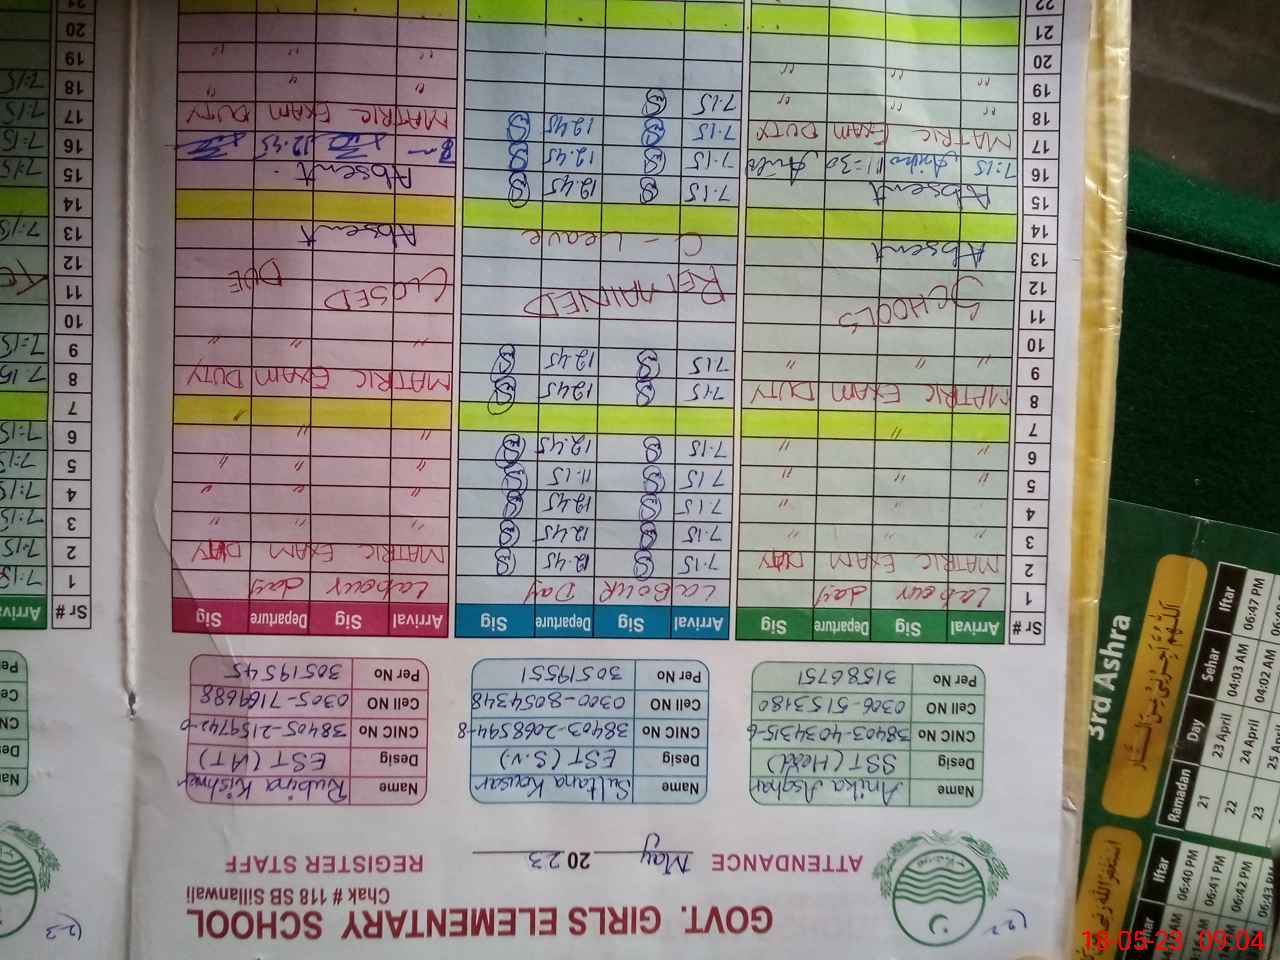 GOVT. GIRLS ELEMENTARY SCHOOL
Chak # 118 SB Sillanwali
ATTENDANCE May 2023 REGISTER STAFF
Name Anika Asghar
Desig SST (Head)
CNIC No 38403-4034315-6
Cell NO 0306-5153180
Per No 31586751
Name Sultana Kousar
Desig EST (S.V)
CNIC No 38403-2068594-8
Cell NO 0300-8054348
Per No 30519551
Name Rubina Kishwer
Desig EST (AT)
CNIC No 38405-2159742-0
Cell NO 0305-7169688
Per No 30519545
Sr # Arrival Sig Departure Sig Arrival Sig Departure Sig Arrival Sig Departure Sig
1 Labour day LABOUR Day Labour day
2 MATRIC EXAM 7.15 S 12.45 S MATRIC EXAM
3 " " " 7.15 S 12.45 S " " "
4 " " " 7.15 S 12.45 S " " "
5 " " " 7.15 S 11.15 S " " "
6 " " " 7.15 S 12.45 S " " "
7
8 MATRIC EXAM DUTY 7.15 S 12.45 S MATRIC EXAM DUTY
9 " " " 7.15 S 12.45 S " " "
10
11 SCHOOLS REMAINED CLOSED DUE
12
13 Absent C-Leave Absent
14
15 Absent 7.15 S 12.45 S Absent
16 7:15 Anika 11:30 Anika 7.15 S 12.45 S 12.45
17 MATRIC EXAM DUTY 7.15 S 12.45 S MATRIC EXAM DUTY
18 " " " 7.15 S " "
19 " " "
20 " " "
21
22
Sr # Arrival
1 7:15
2 7:15
3 7:15
4 7:15
5 7:15
6 7:15
7
8 7.15
9 7:15
10
11
12
13 7:15
14
15 7:15
16 7:15
17 7:15
18 7:15
19
20
21
3rd Ashra
Ramadan Day Sehar Iftar
21 23 April 04:03 AM 06:47 PM
22 24 April 04:02 AM
23 25 April
Iftar
06:40 PM
06:41 PM
06:42 PM
06:43 PM
18-05-23 09:04